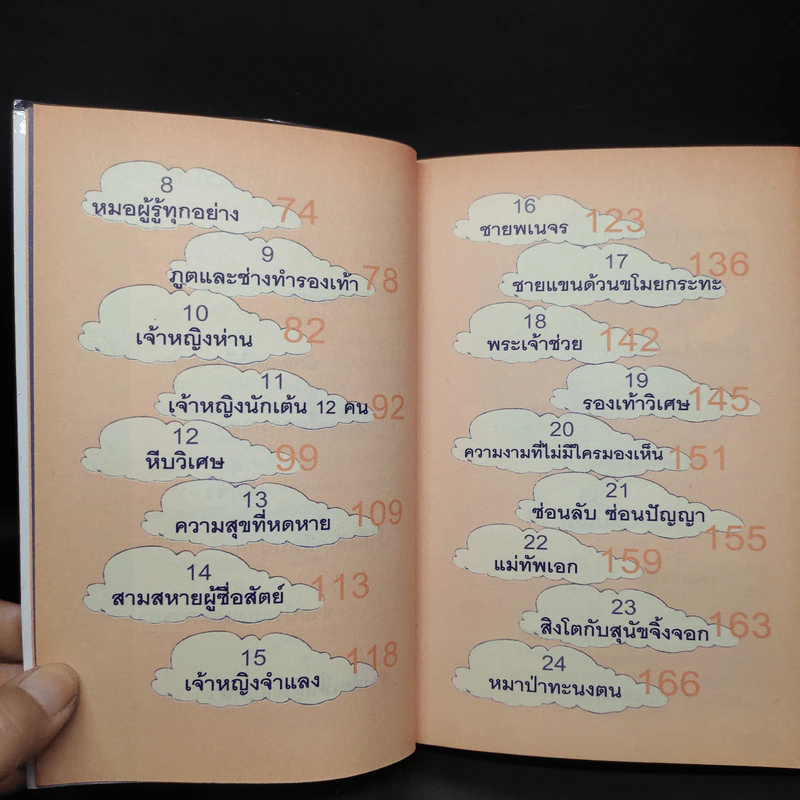 8
หมอผู้รู้ทุกอย่าง 74
9
ภูตและช่างทำรองเท้า 78
10
เจ้าหญิงห่าน 82
11
เจ้าหญิงนักเต้น 12 คน 92
12
หีบวิเศษ 99
13
ความสุขที่หดหาย 109
14
สามสหายผู้ซื่อสัตย์ 113
15
เจ้าหญิงจำแลง 118
16
ชายพเนจร 123
17
ชายแขนด้วนขโมยกระทะ 136
18
พระเจ้าช่วย 142
19
รองเท้าวิเศษ 145
20
ความงามที่ไม่มีใครมองเห็น 151
21
ซ่อนลับ ซ่อนปัญญา 155
22
แม่ทัพเอก 159
23
สิงโตกับสุนัขจิ้งจอก 163
24
หมาป่าทะนงตน 166